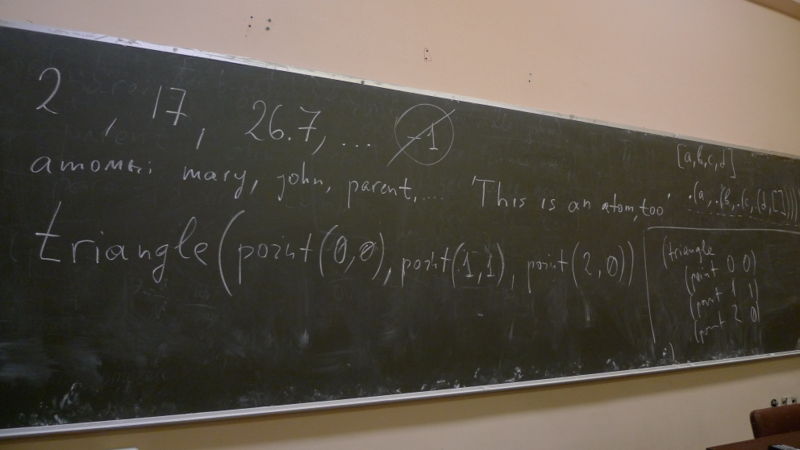 2, 17, 26.7, ... -1
атомы: mary, john, parent, ... 'This is an atom, too'
triangle(point(0,0), point(1,1), point(2,0))
[a,b,c,d]
.(a, .(b, .(c, .(d, []))))
(triangle
(point 0 0)
(point 1 1)
(point 2 0)
)